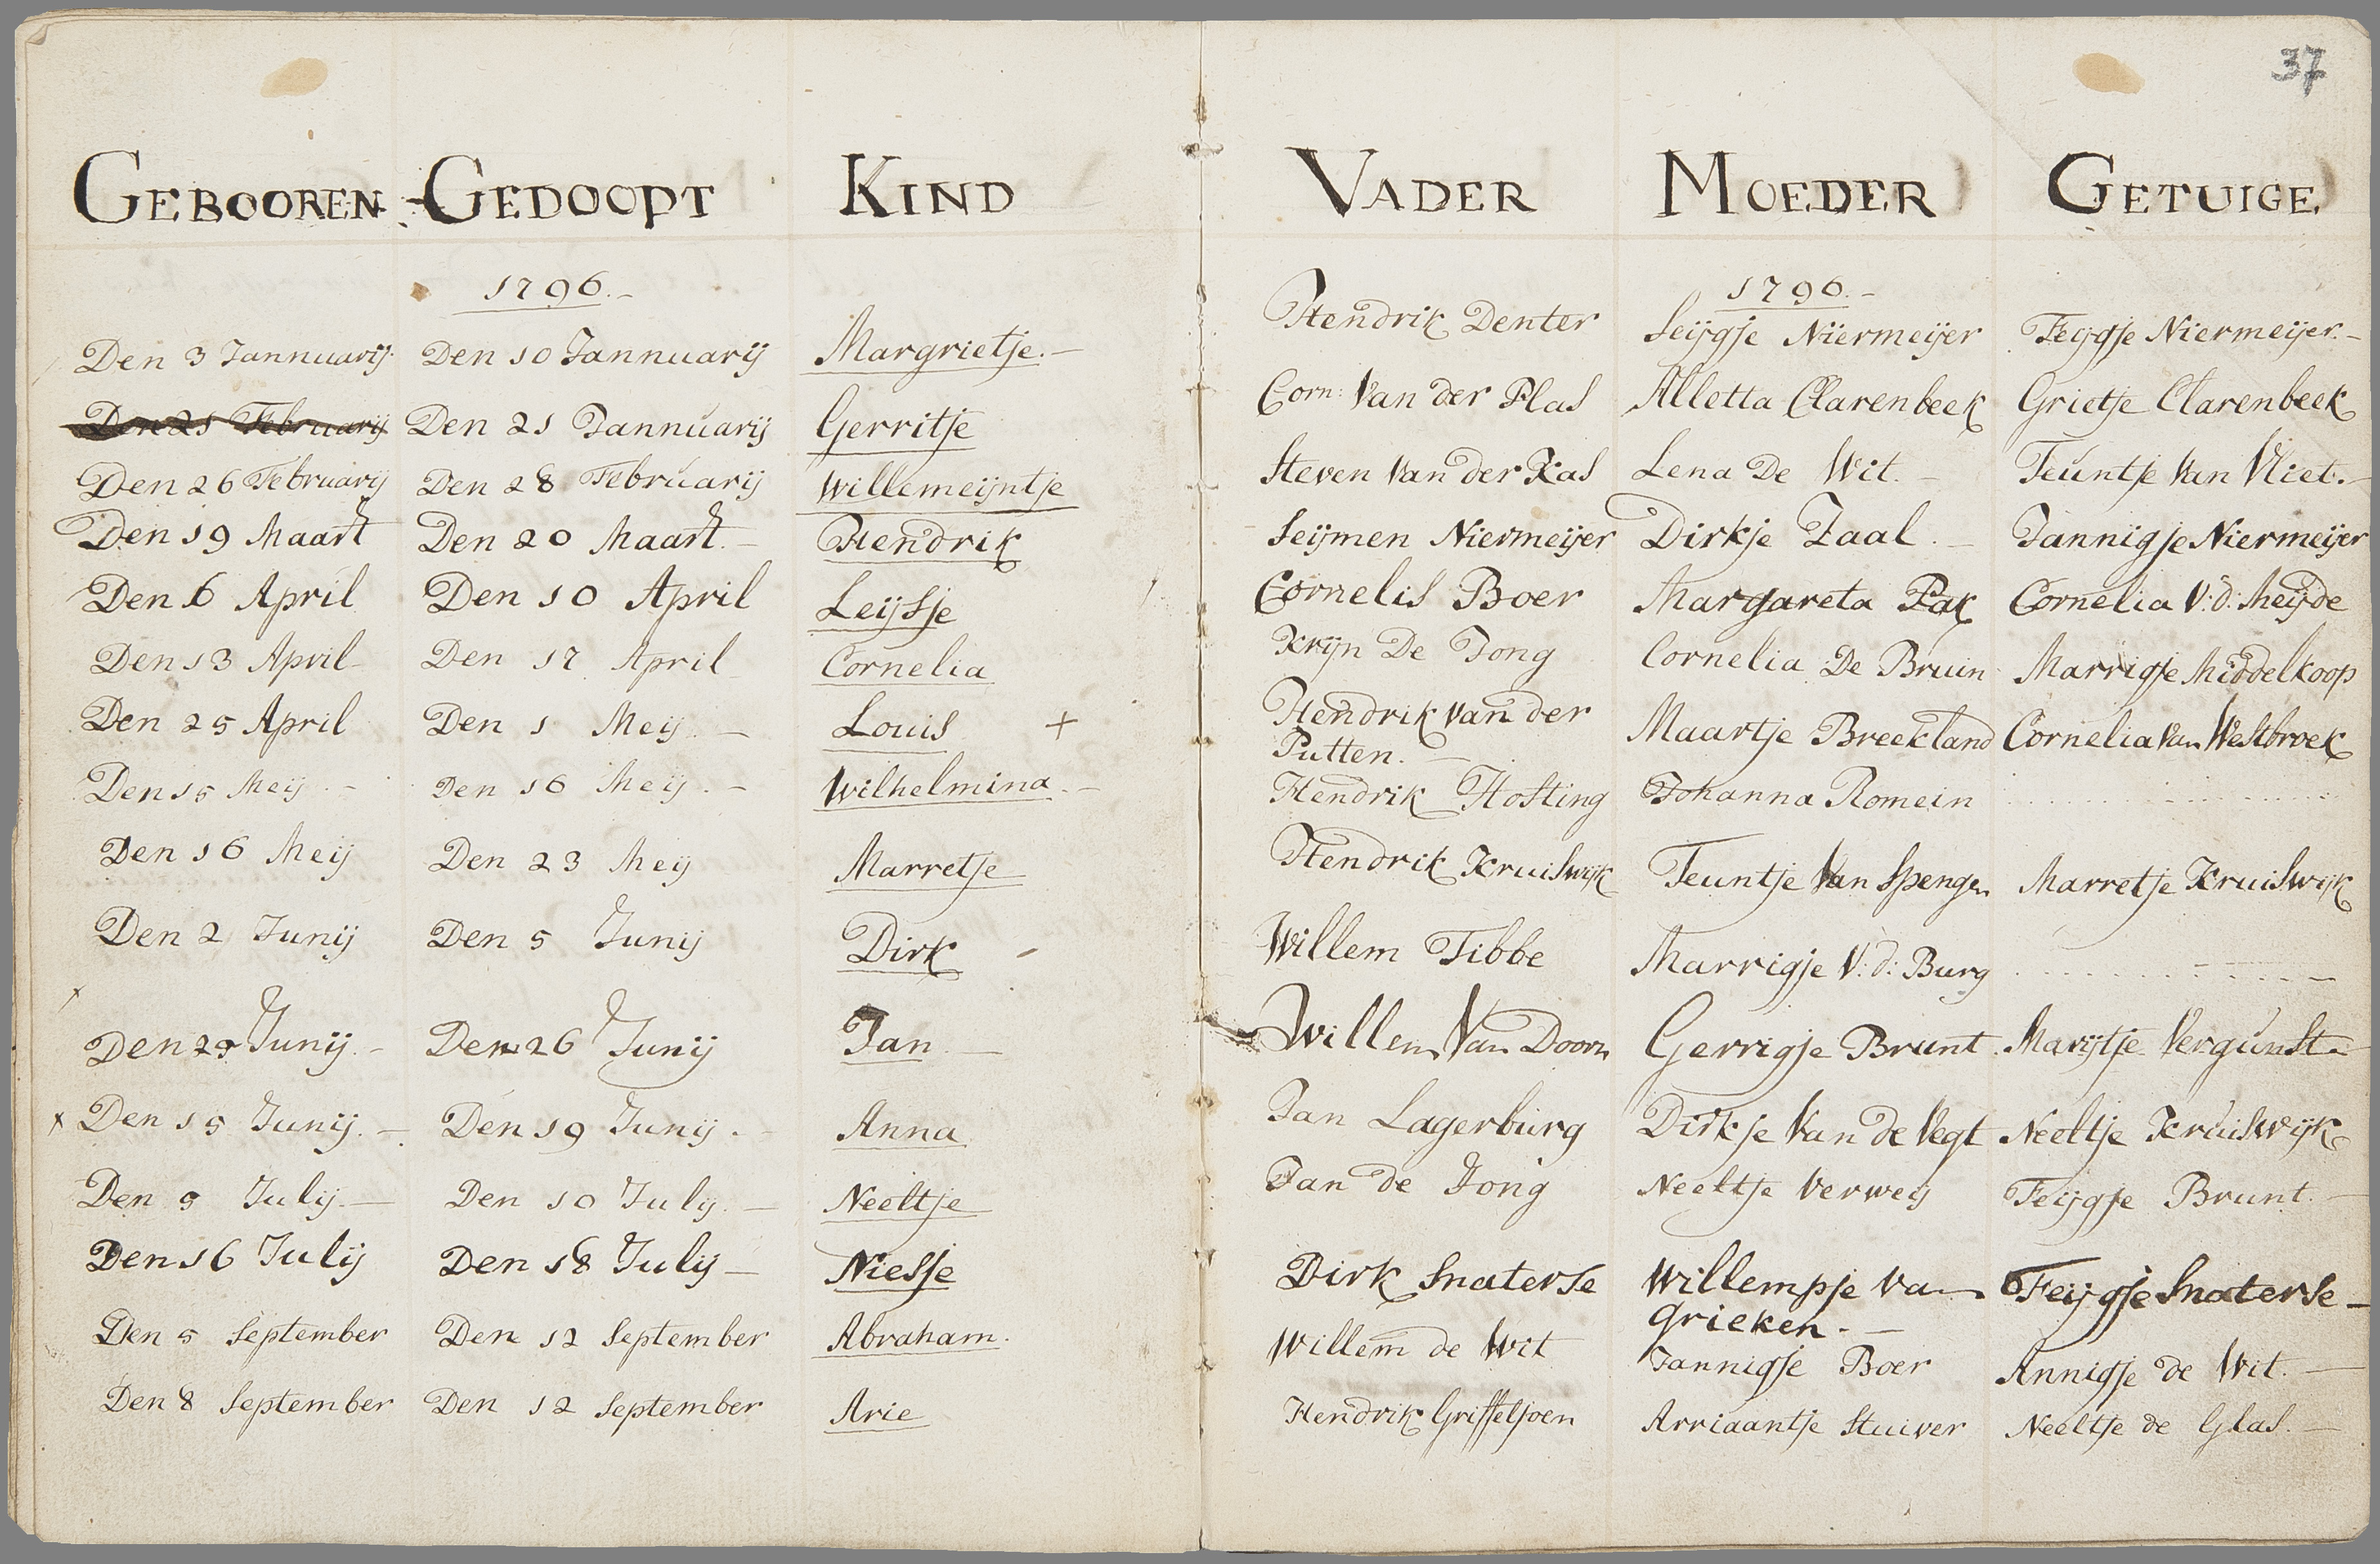 37
GEBOOREN GEDOOPT KIND VADER MOEDER GETUIGE
1796.- 1796.-
Den 3 Jannuarij. Den 10 Jannuarij Margrietje.- Hendrik Denter Seijgje Niermeijer Feijgje Niermeijer.-
Den 21 Februarij Den 21 Jannuarij Gerritje Corn: Van der Plas Alletta Clarenbeek Grietje Clarenbeek
Den 26 Februarij Den 28 Februarij Willemeijntje Steven Van der Kas Lena De Wit.- Teuntje Van Vliet.-
Den 19 Maart Den 20 Maart.- Hendrik Seijmen Niermeijer Dirkje Zaal.- Jannigje Niermeijer
Den 6 April Den 10 April Leijsje Cornelis Boer Margareta Pak Cornelia V:d: Meijde
Den 13 April Den 17 April Cornelia Krijn De Jong Cornelia De Bruin Marrigje Middelkoop
Den 25 April Den 1 Meij.- Louis + Hendrik van der Maartje Breekland Cornelia Van Westbroek
Putten.-
Den 15 Meij.- Den 16 Meij.- Wilhelmina.- Hendrik Hosting Johanna Romein
Den 16 Meij Den 23 Meij Marretje Hendrik Kruiswijk Teuntje Van Spengen Marretje Kruiswijk
Den 2 Junij Den 5 Junij Dirk Willem Tibbe Marrigje V:d: Burg
Den Junij.- Den 26 Junij Jan Willem Van Doorn Gerrigje Brunt Marijtje Vergunst
x Den 15 Junij.- Den 19 Junij.- Anna Jan Lagerburg Dirkje Van de Vegt Neeltje Kruiswijk
Den 9 Julij.- Den 10 July.- Neeltje Jan de Jong Neeltje Verweij Feijgje Brunt.-
Den 16 Julij Den 18 Julij- Niesje Dirk Snaterse Willempje Van Feijgje Snaterse-
Grieken.-
Den 5 September Den 12 September Abraham. Willem de Wit Jannigje Boer Annigje de Wit.-
Den 8 September Den 12 September Arie Hendrik Griffeljoen Arriaantje Stuiver Neeltje de Glas.-